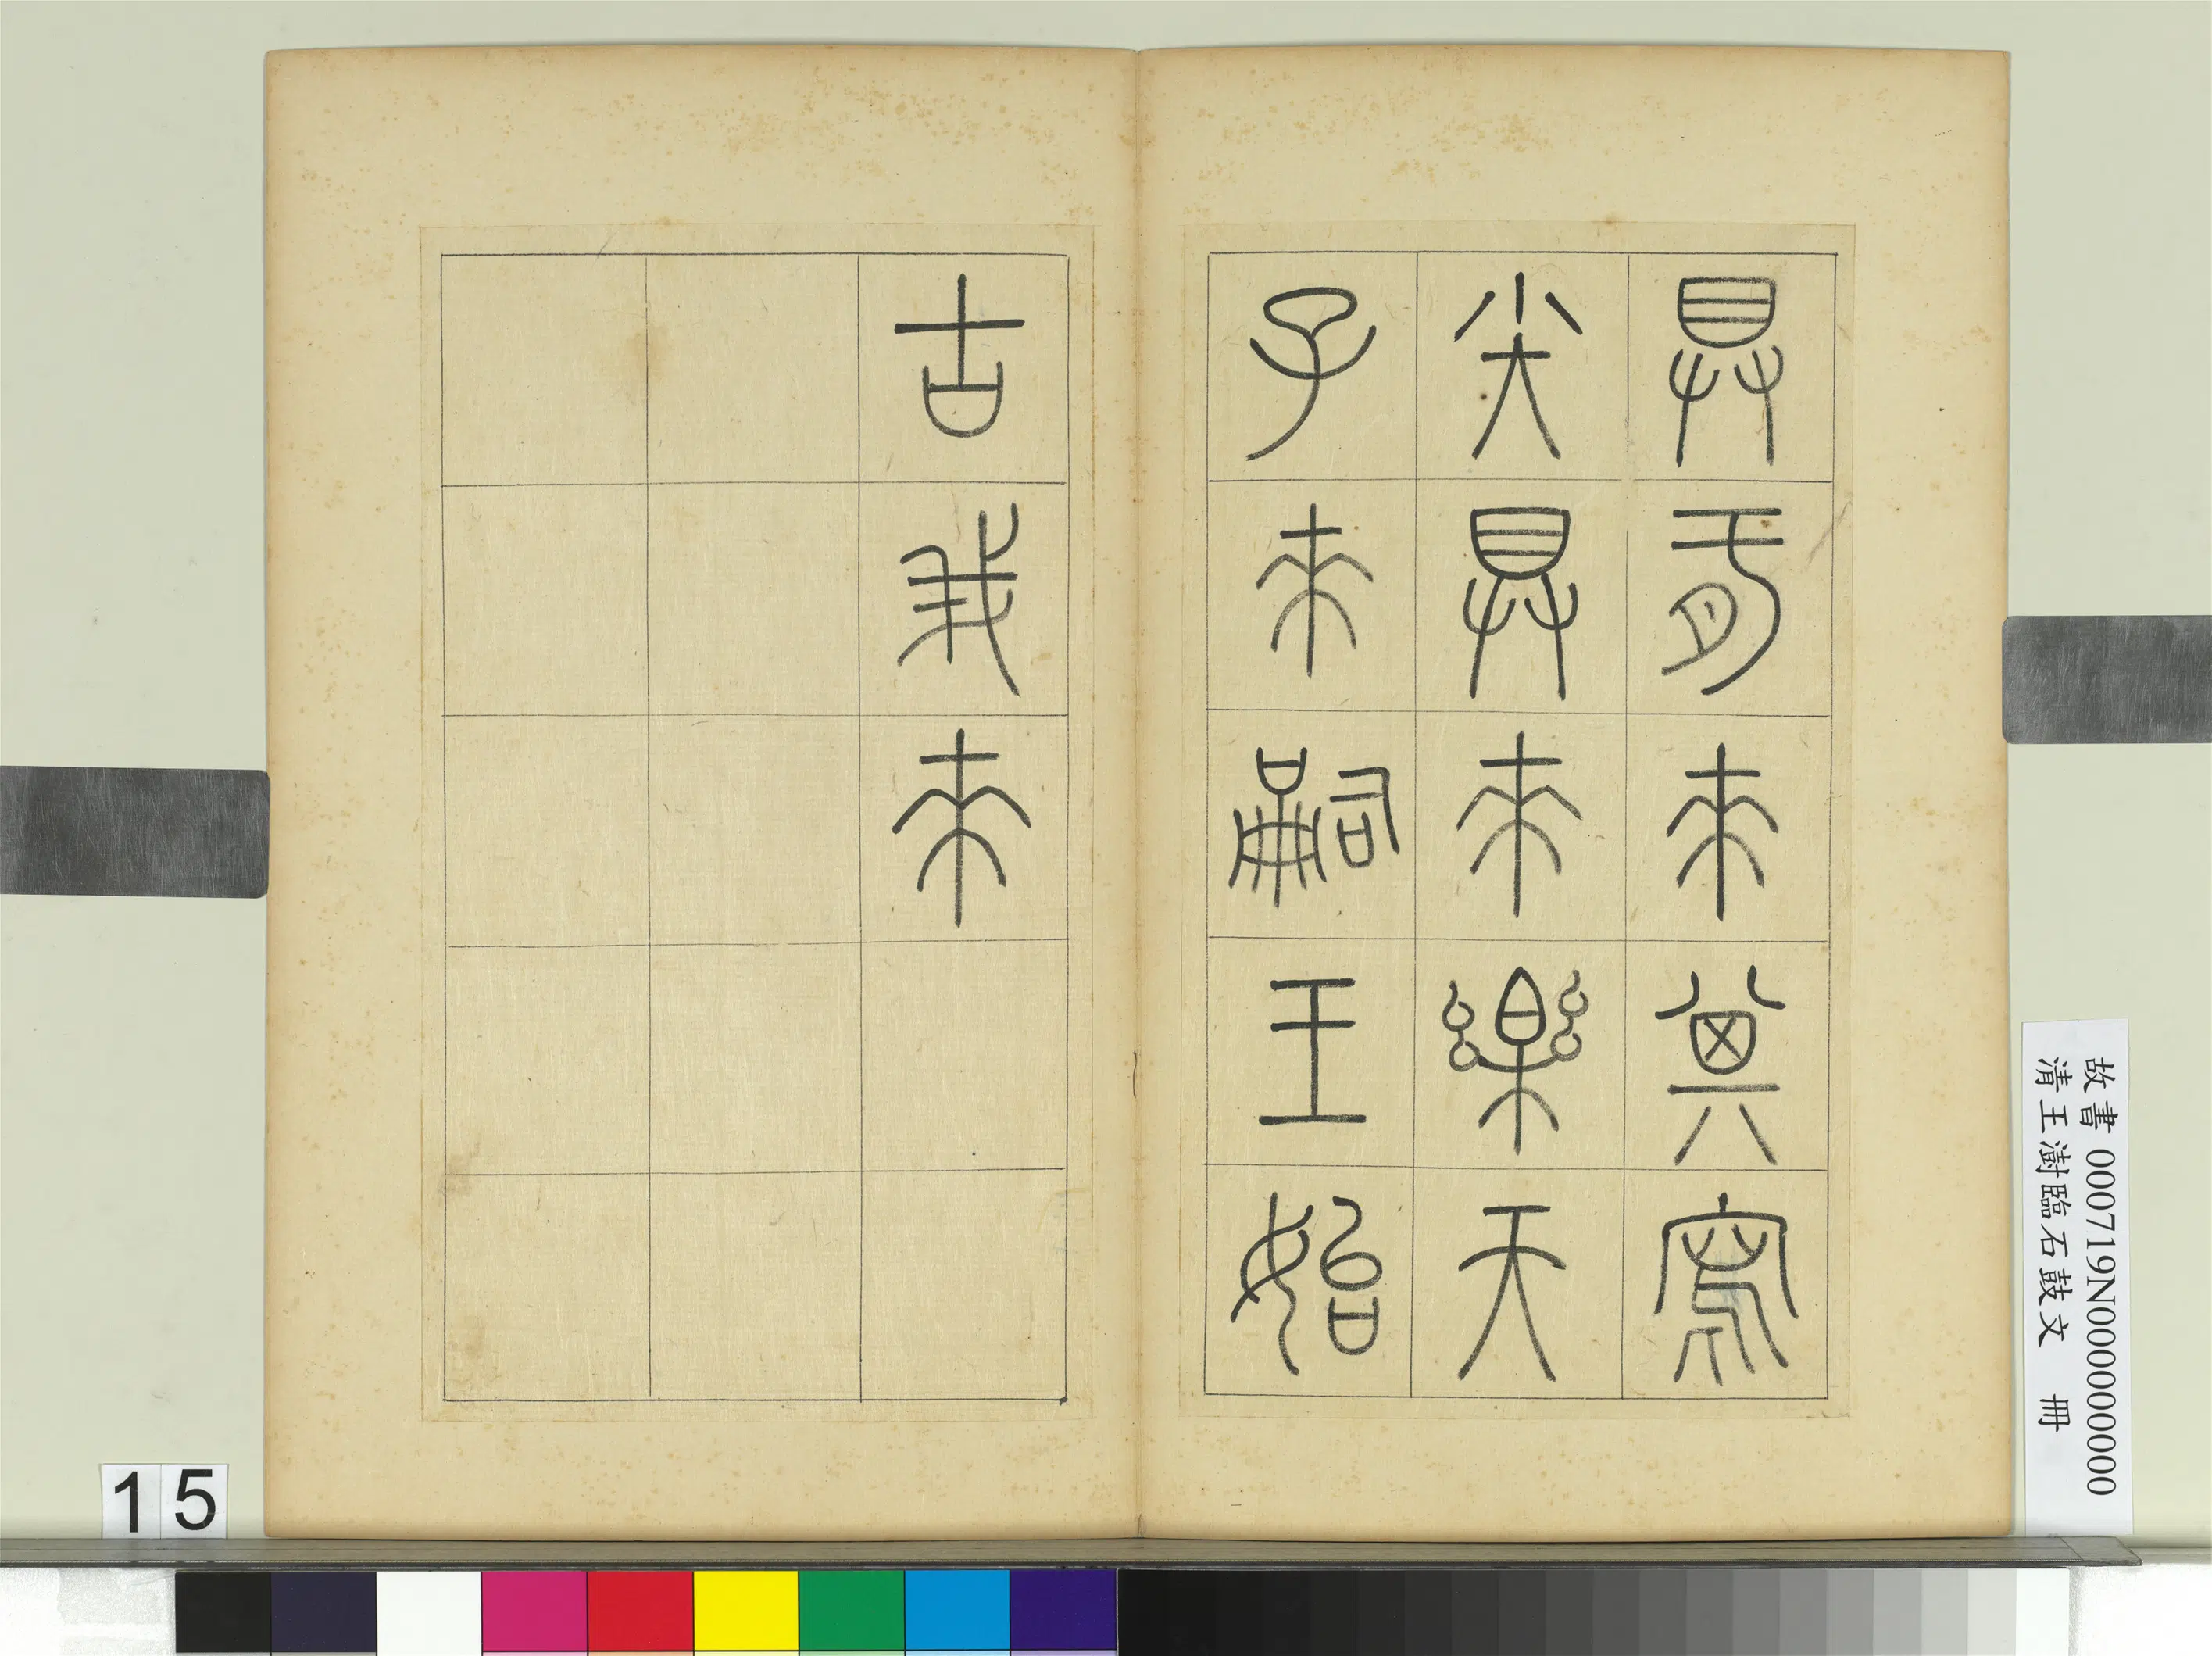 具來其寫
小大具來樂天
子來嗣王始
古我來
故書 000719N000000000
清王澍臨石鼓文 冊
15